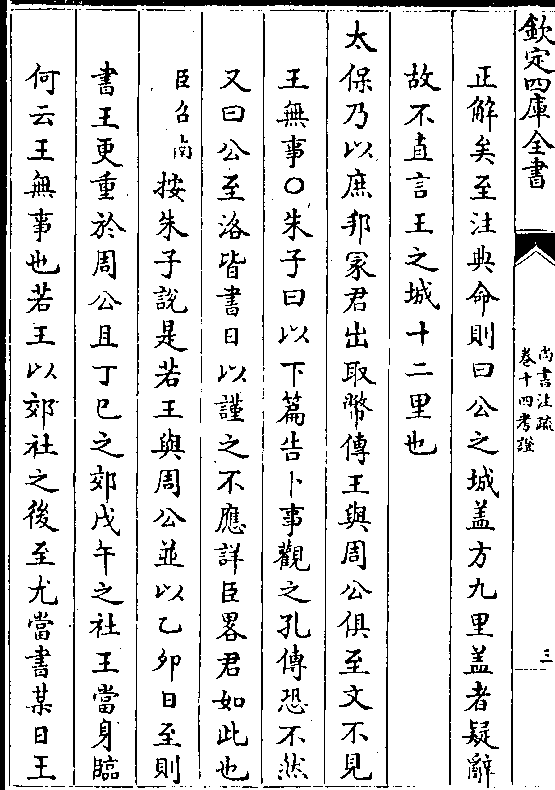 欽定四庫全書
尚書注疏
卷十四考證
三
正解矣至注典命則曰公之城盖方九里盖者疑辭
故不直言王之城十二里也
太保乃以庶邦冢君出取幣傳王與周公俱至文不見
王無事○朱子曰以下篇告卜事觀之孔傳恐不然
又曰公至洛皆書日以謹之不應詳臣畧君如此也
臣召南按朱子說是若王與周公並以乙卯日至則
書王更重於周公且丁巳之郊戊午之社王當身臨
何云王無事也若王以郊社之後至尤當書某日王